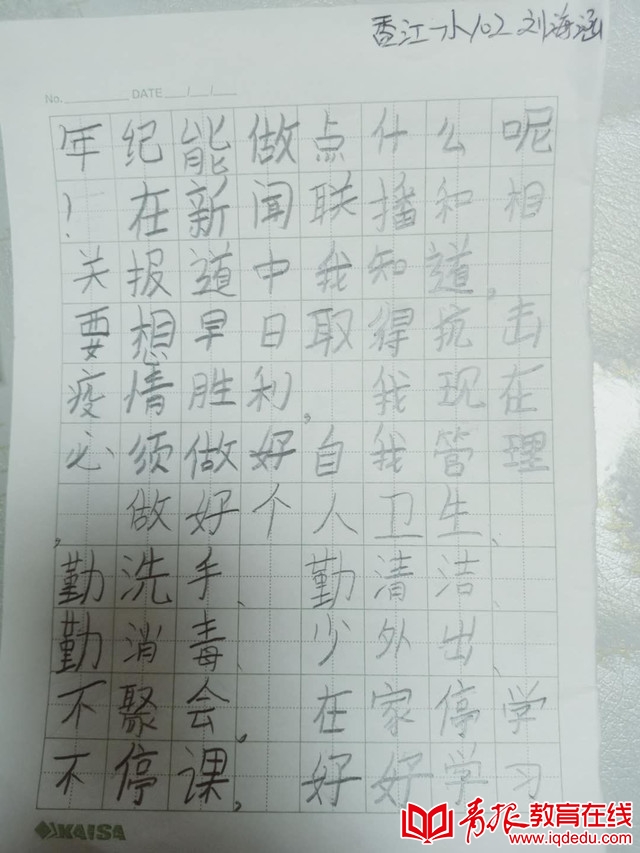 香江一小102刘海涵
No. DATE / /
年纪能做点什么呢
！在新闻联播和相
关报道中我知道，
要想早日取得抗击
疫情胜利，我现在
必须做好自我管理
，做好个人卫生、
勤洗手、勤清洁、
勤消毒、少外出、
不聚会。在家停学
不停课，好好学习
KAISA
青报教育在线
www.iqdedu.com